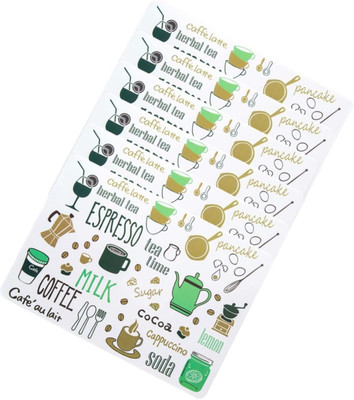 caffe latte
herbal tea
pancake
caffe latte
herbal tea
pancake
caffe latte
herbal tea
pancake
caffe latte
herbal tea
pancake
caffe latte
herbal tea
pancake
caffe latte
herbal tea
pancake
ESPRESSO
tea
time
COFFEE
MILK
Sugar
Café au lait
cocoa
Cappuccino
lemon
soda